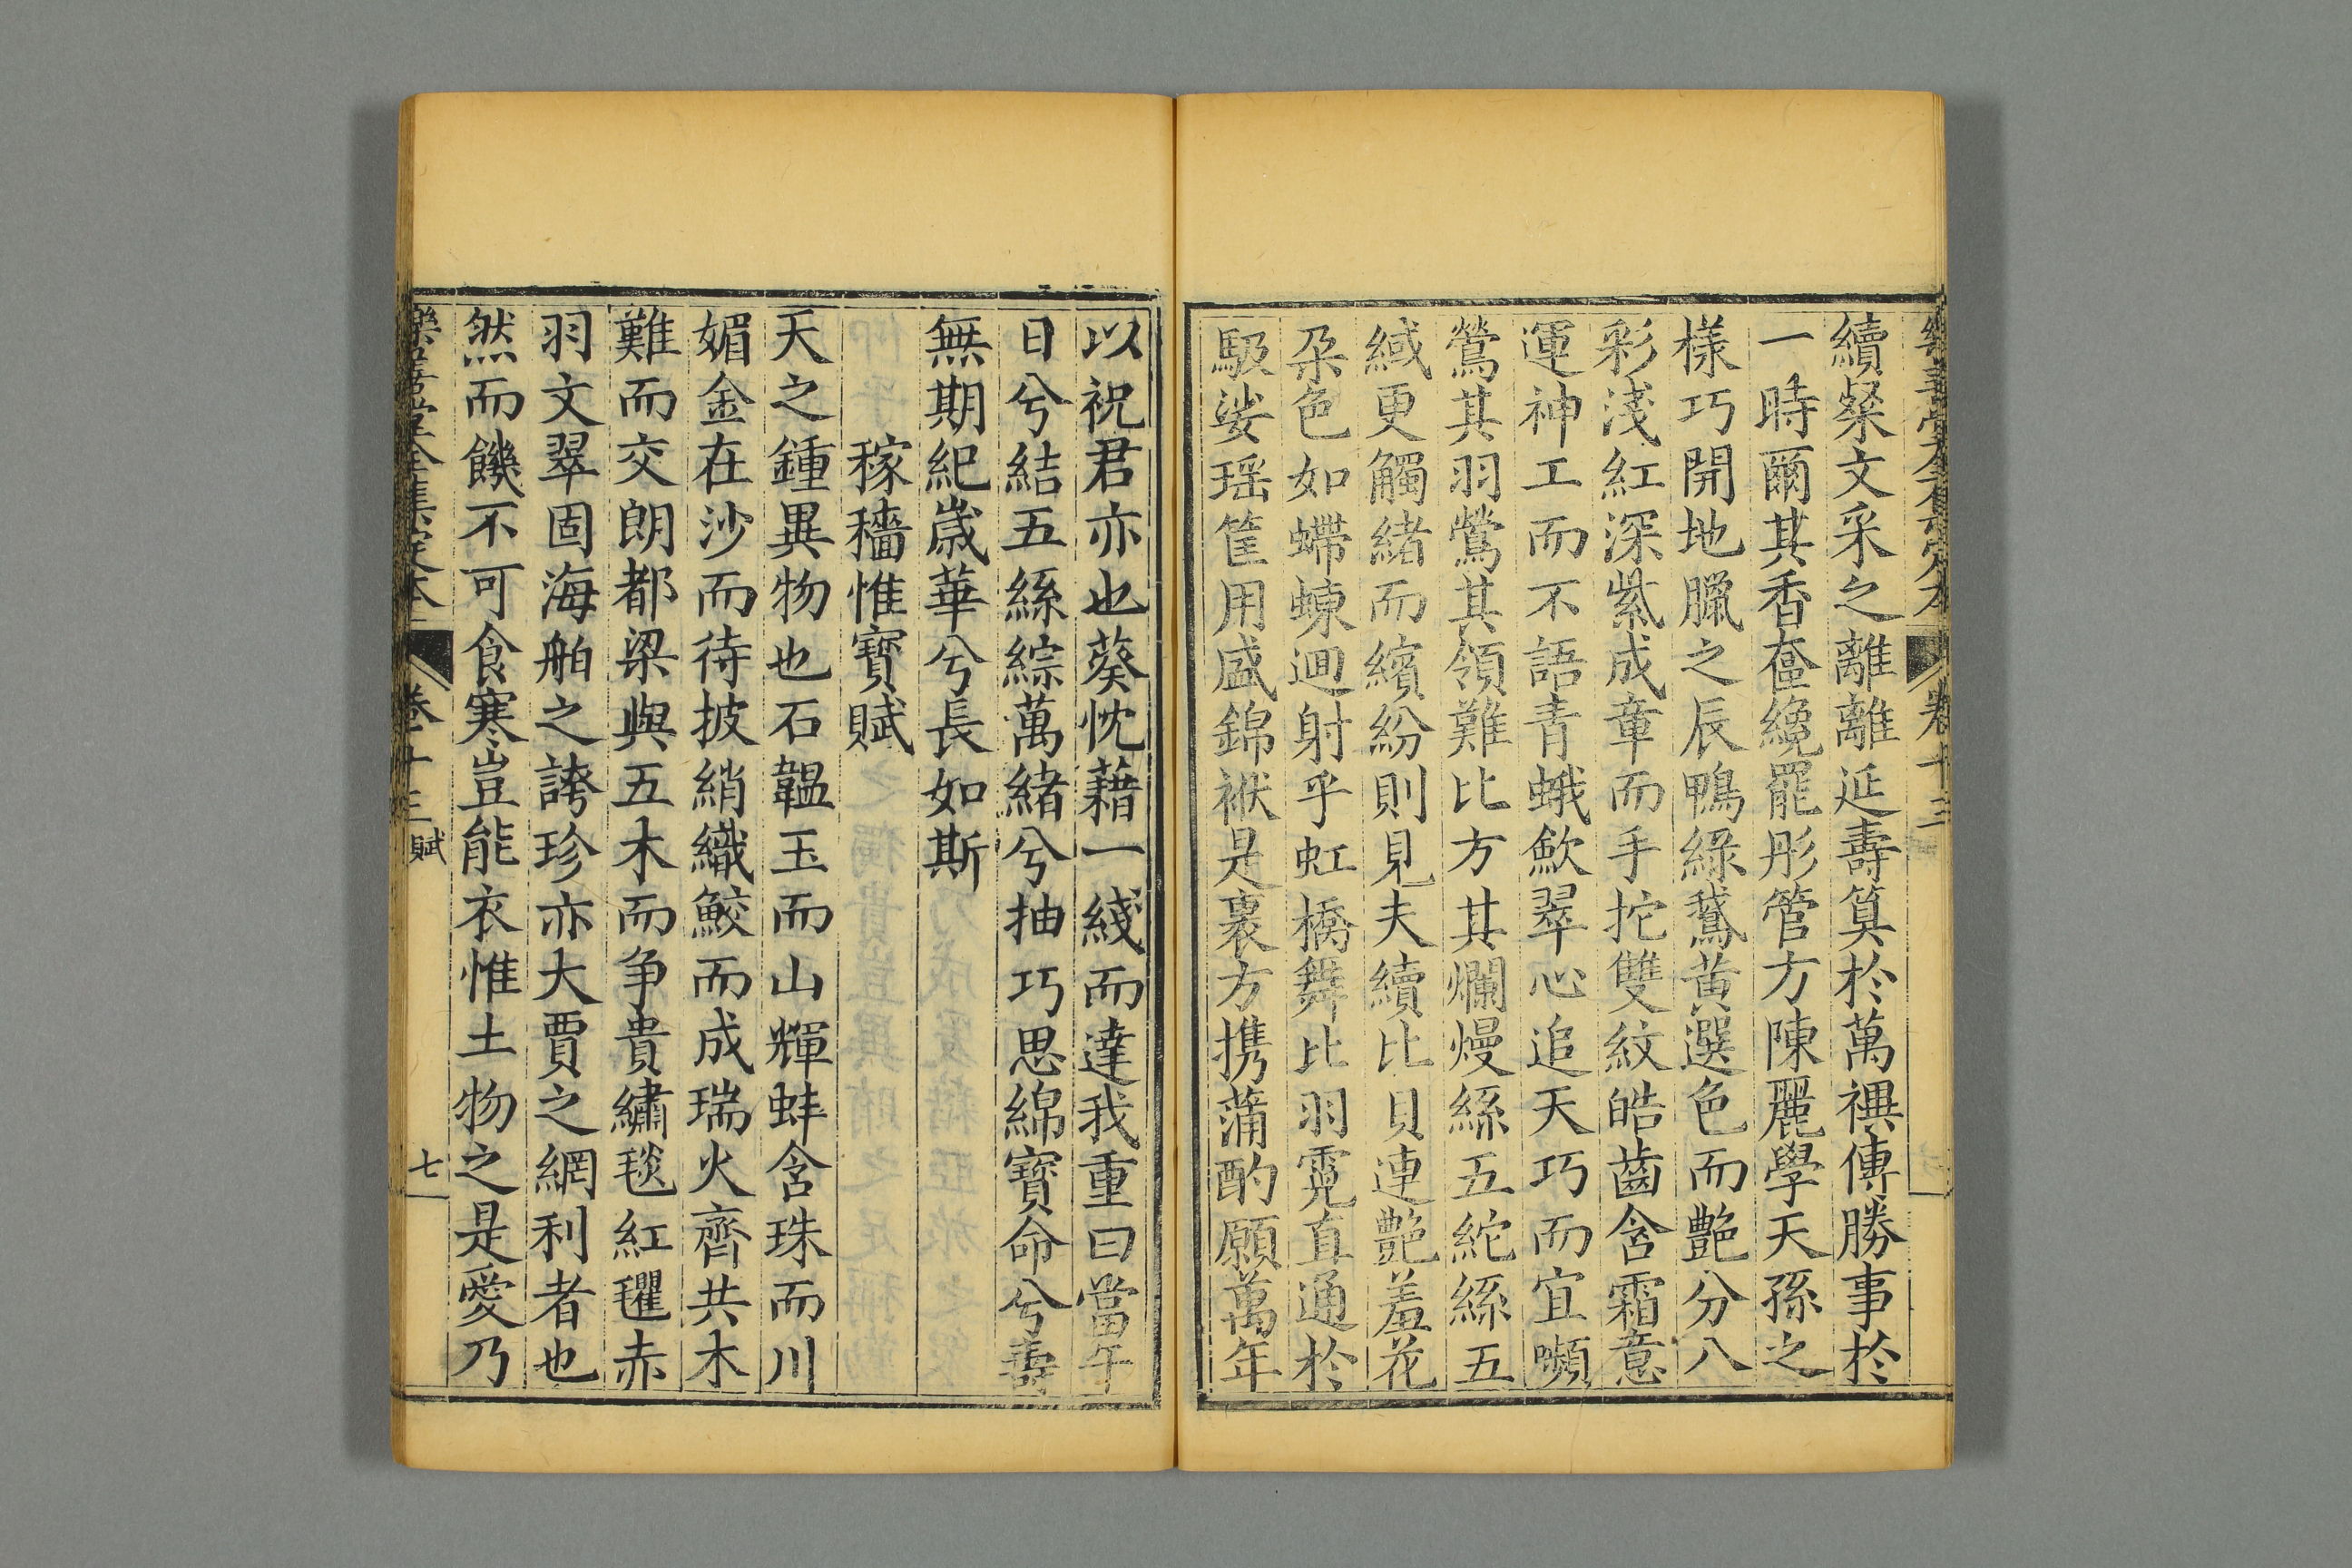 續粲文采之離離延壽筭於萬禩傳勝事於
一時爾其香奩纔罷彤管方陳麗學天孫之
樣巧開地臘之辰鴨綠鵞黄選色而艶分八
彩淺紅深紫成章而手挖雙紋皓齒含霜意
運神工而不語青蛾歛翠心追天巧而宜嚬
鶯其羽鶯其領難比方其爛熳絲五紽絲五
緎更觸緒而繽紛則見夫續比貝連艶羞花
朶色如螮蝀迴射乎虹橋舞比羽霓直通於
馺娑瑶筐用盛錦袱是裹方携蒲酌願萬年
以祝君亦也葵忱藉一綫而達我重曰當午
日兮結五絲綜萬緒兮抽巧思綿寳命兮壽
無期紀嵗華兮長如斯
稼穡惟寳賦
天之鍾異物也石韞玉而山輝蚌含珠而川
媚金在沙而待披綃織鮫而成瑞火齊共木
難而交朗都梁與五木而争貴繡毯紅氍赤
羽文翠固海舶之誇珍亦大賈之網利者也
然而饑不可食寒豈能衣惟土物之是愛乃
樂善堂全集定本 卷十三 賦 七